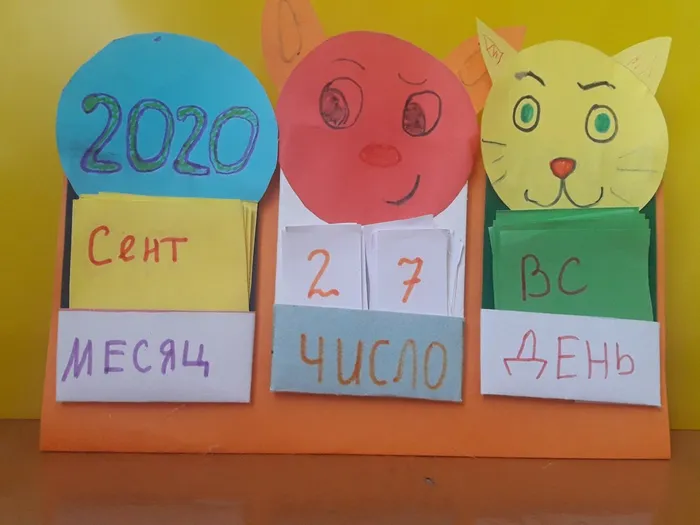 2020
Сент
МЕСЯЦ
2 7
ЧИСЛО
ВС
ДЕНЬ